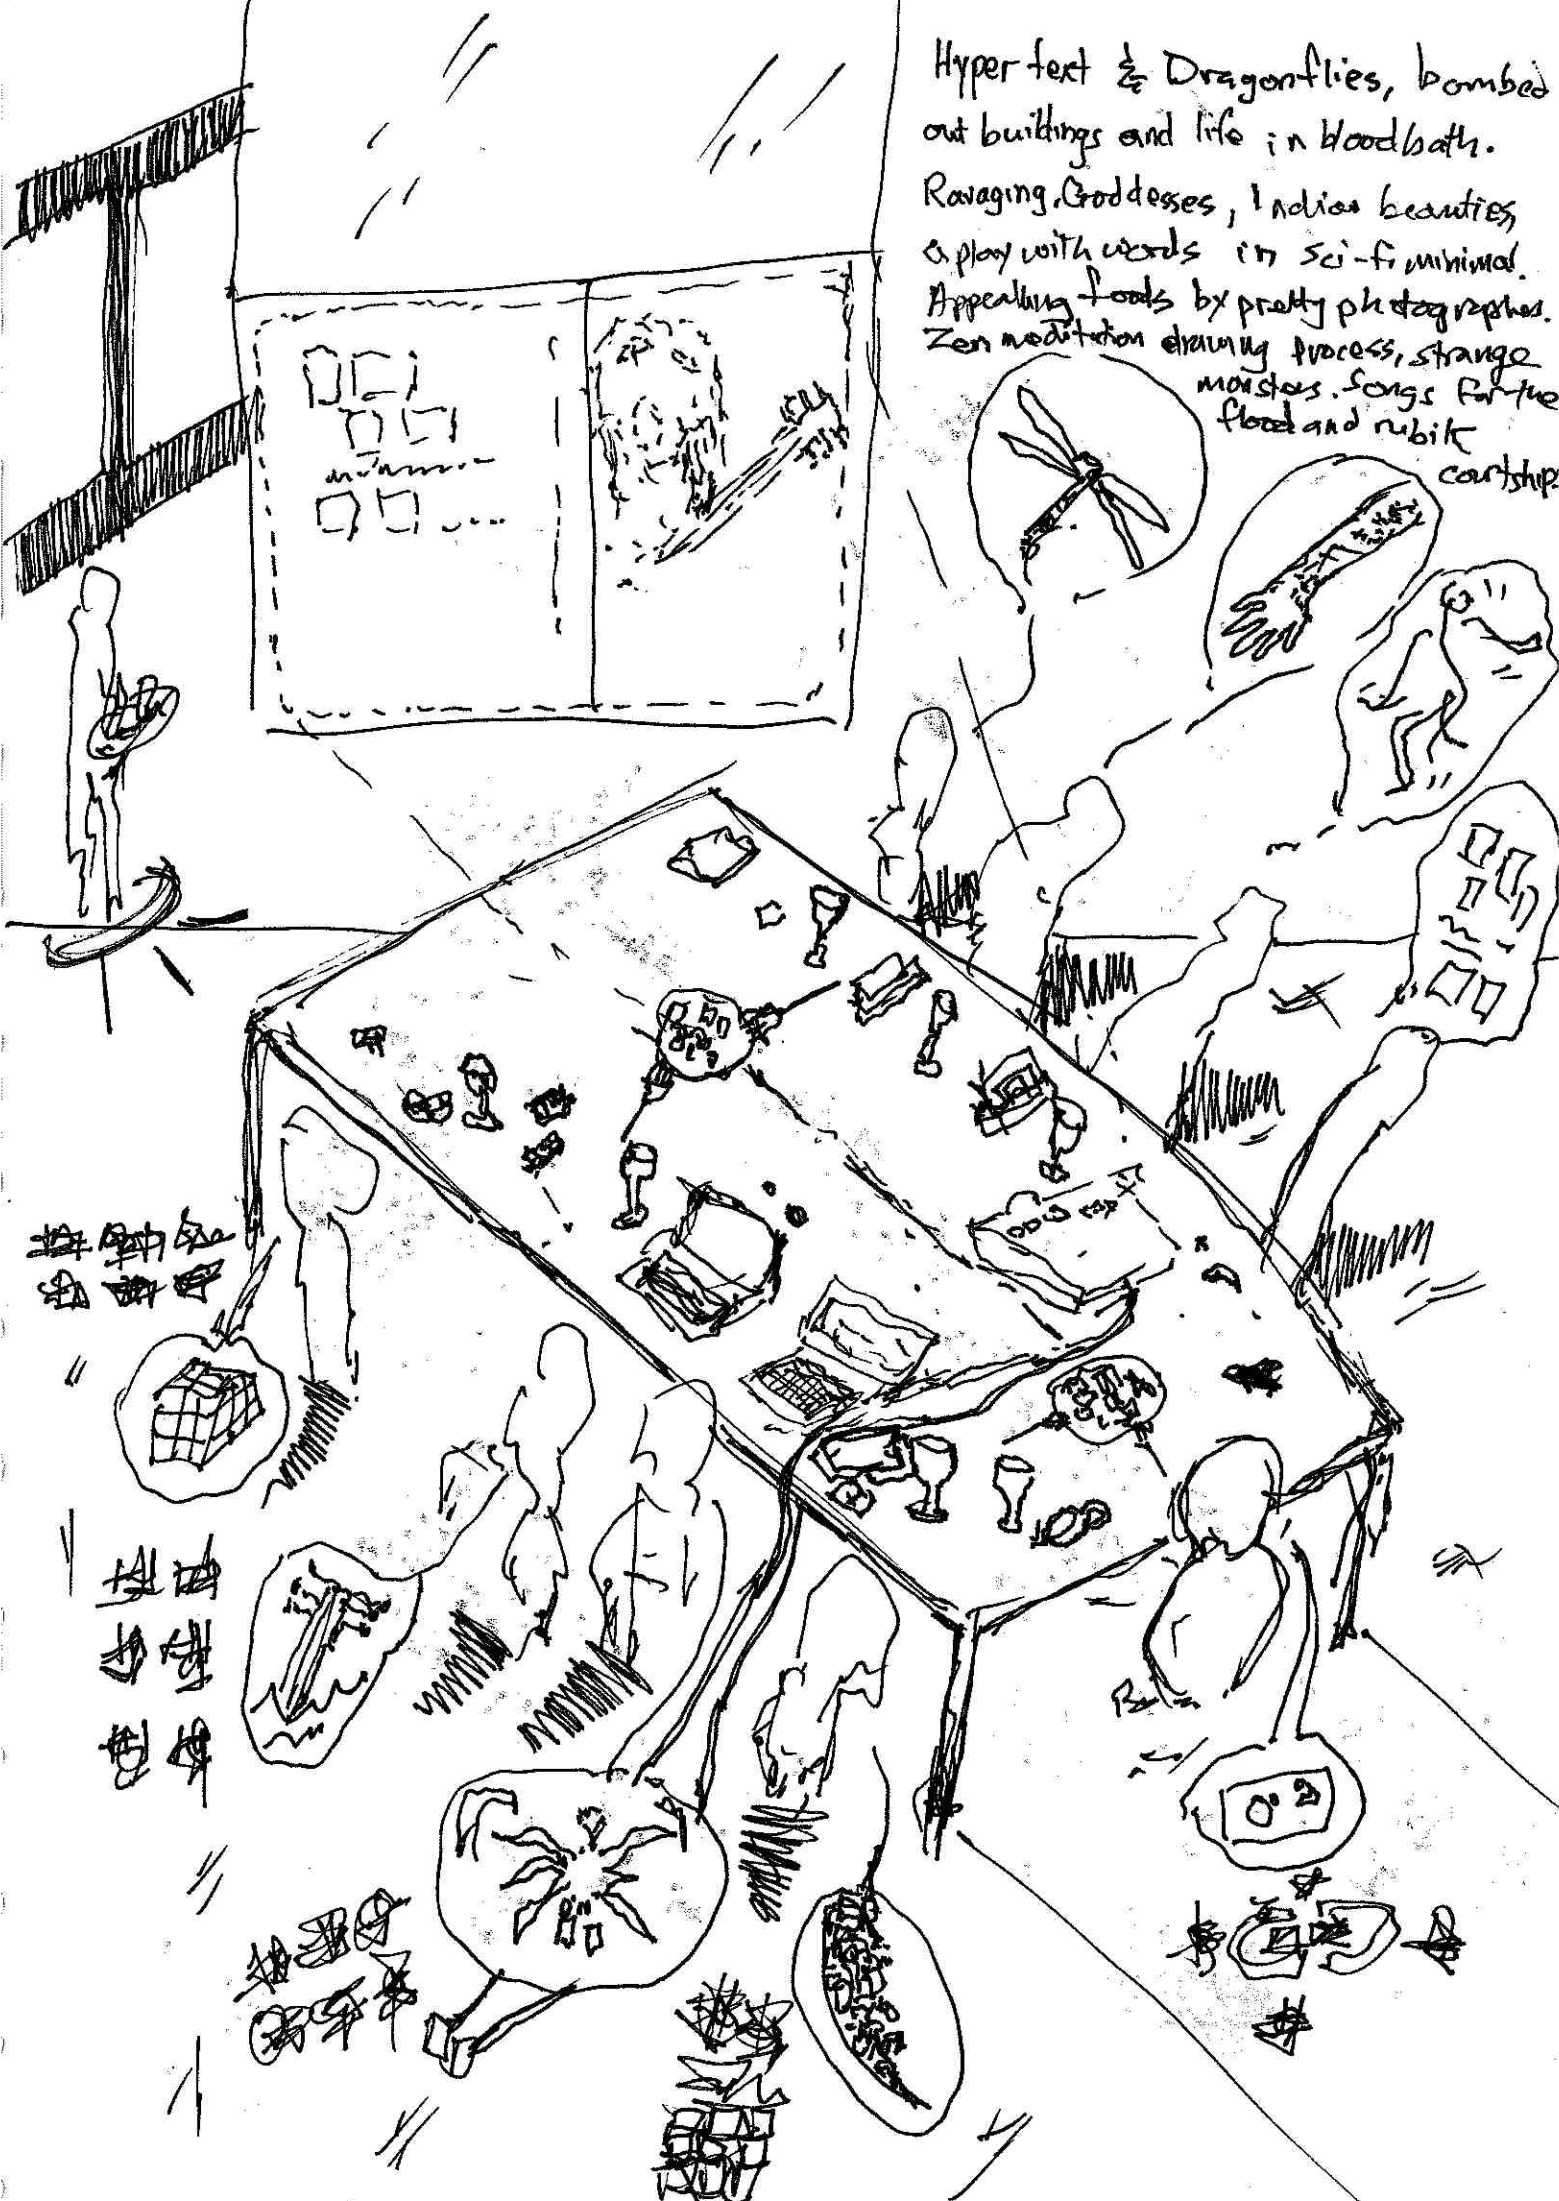 Hyper text & Dragonflies, bombed
out buildings and life in bloodbath.
Ravaging Goddesses, Indian beauties,
a play with words in sci-fi minimal.
Appealing foods by pretty photographes.
Zen meditation drawing process, strange
monsters. Songs for the
flood and rubik
courtship.